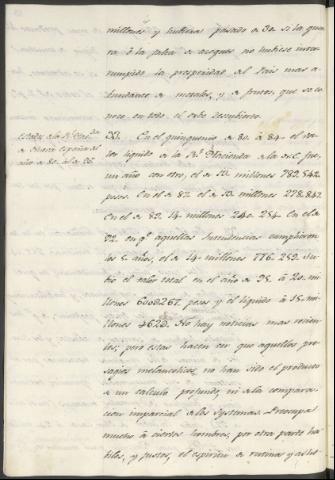 millones, y hubiera pasado de 30. si la guer
ra ò la falta de azogues no hubiese inter
rumpido la prosperidad del Pais mas a
bundante de metales, y de frutos, que se co
noce en todo el orbe descubierto.
Estado de la Rl. Hazda.
de Nueva España del
año de 80. al de 96.
En el quinquenio de 80. à 84. el va
lor liquido de la Rl. Hacienda de la N.E. fue,
un año con otro, el de 10. millones 789.542.
pesos. En el de 87. el de 10. millones 278.842.
En el de 89. 14. millones 240. 254. En el de
92. en qe. aquellas Intendencias cumplieron
los 5. años, el de 14. millones 776. 259. Su
bió el valor total en el año de 95. à 20. mi
llones 600$267. pesos y el liquido à 15. mi
llones 462$. No hay noticias mas recien
tes; pero estas hacen ver que aquellos pre
sagios melancolicos, no han sido el producto
de un calculo profundo, ni de la compara
cion imparcial de los Systemas. Preocupa
mucho à ciertos hombres, por otra parte ha
biles, y justos, el espiritu de rutina y